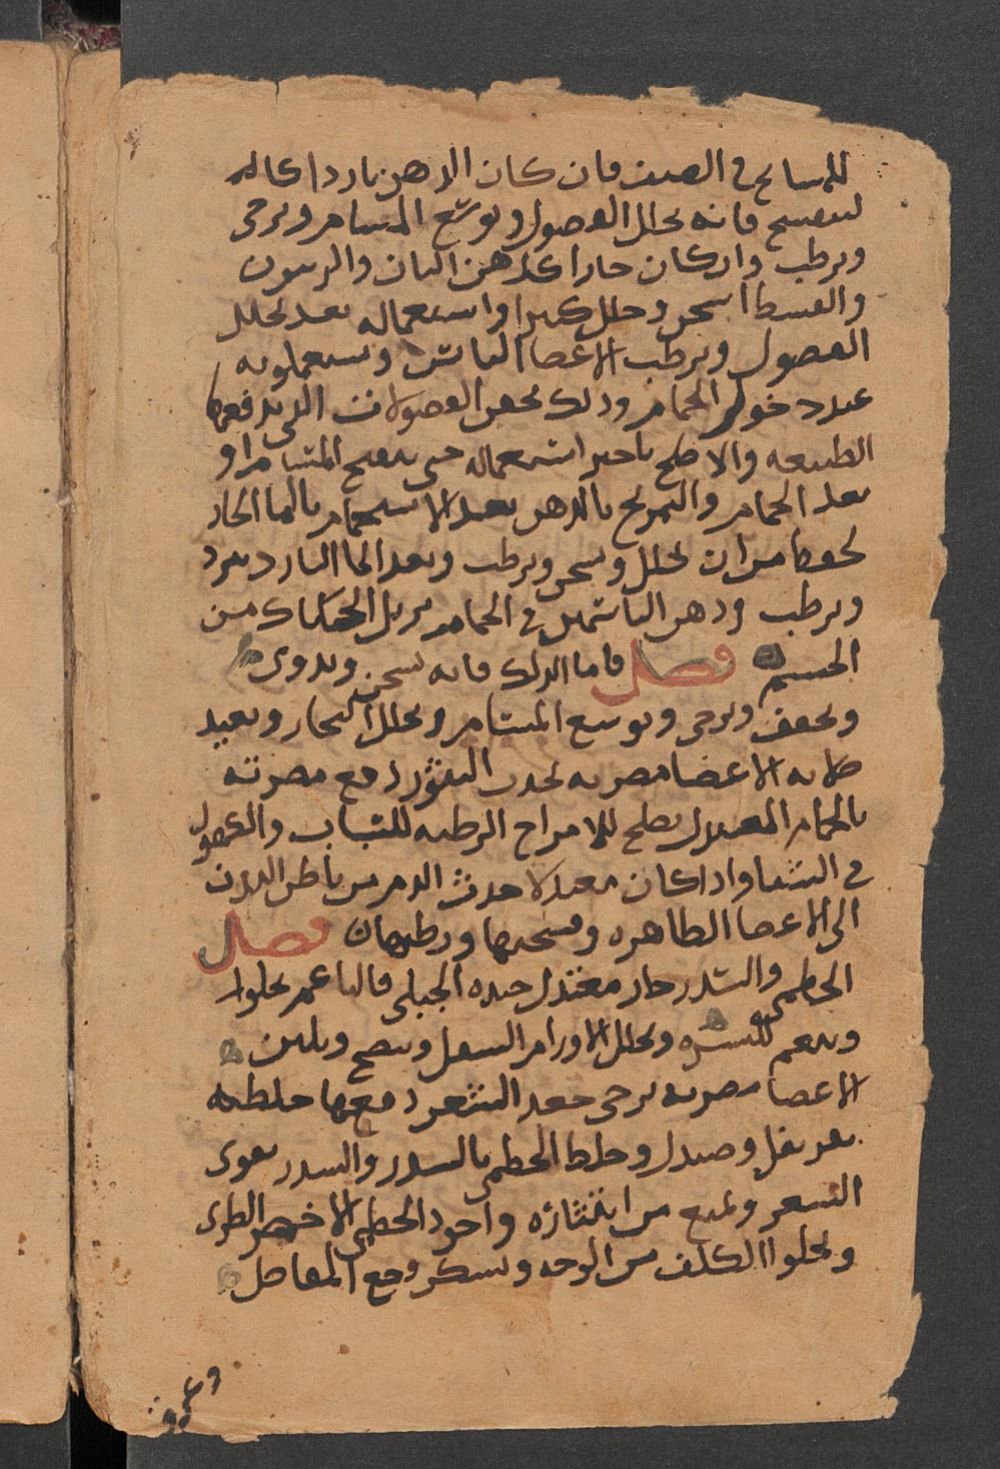 للمسايح في الصيف فان كان الدهن باردا كاله
لبنفسج فانه يحلل الفضول ويوسّع المسام ويرخى
ويرطب وان كان حارا كدهن البان والزيتون
والقسط اسخن وحلل كثيرا واستعماله بعد تحلل
الفضول ويرطب الاعضا اليابسة ويستعملونه
عند دخول الحمام وذلك يحقن الفضولات التى يدفعها
الطبيعه والاصلح تاخير استعماله حتى ينفتح المسام او
بعد الحمام والتمريخ بالدهن بعد الاستحمام بالما الحار
يحلل ويسخن ويرطب وبعد الما البارد يبرد
ويرطب ودهن البا في الحمام يزيل الحكاك من
الجسم فصل فاما الدلك فانه يسخن ويقوى
ويجفف ويرخى ويوسع المسام ويحلل البخار ويفيد
صلابه الاعضا مضرته يحدث البثور دفع مضرته
بالحمام المعتدل يصلح للامزاج الرطبه للشباب والكهول
في الشتا واذا كان معتدلا حدث الدم من باطن البدن
الى الاعضا الظاهره ويسخنها ورطبها فصل
الخطمى والسدر حار معتدل جيده الجبلى يحلوا
وينعم البشره ويحلل الاورام السفل وينضج ويلين
الاعصا مضرته يرخى جعد الشعر دفعها خلطه
بقرنفل وصندل وخلط الخطمى بالسدر والسدر يقوى
الشعر ويمنع من انتثاره واجود الخطمى الاخضر الطرى
ويجلوا الكلف من الوجه ويسكن وجع المفاصل